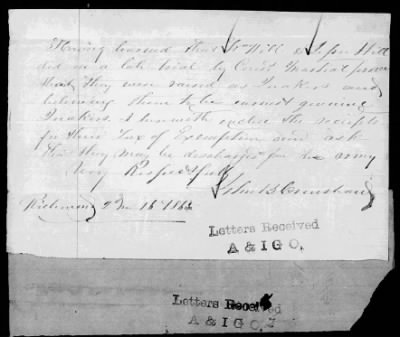 Having learned that Wm Hill & Jesse Hill
did in a late trial by Court Martial prove
that they were raised as Quakers and
believing them to be earnest genuine
Quakers. I herewith enclose the receipts
for their Tax of Exemption and ask
that they may be discharged from the army
Very Respectfully
John B Crenshaw
Richmond 2 Mo 18th 1863
Letters Received
A & I G O.
Letters Received
A & I G O.